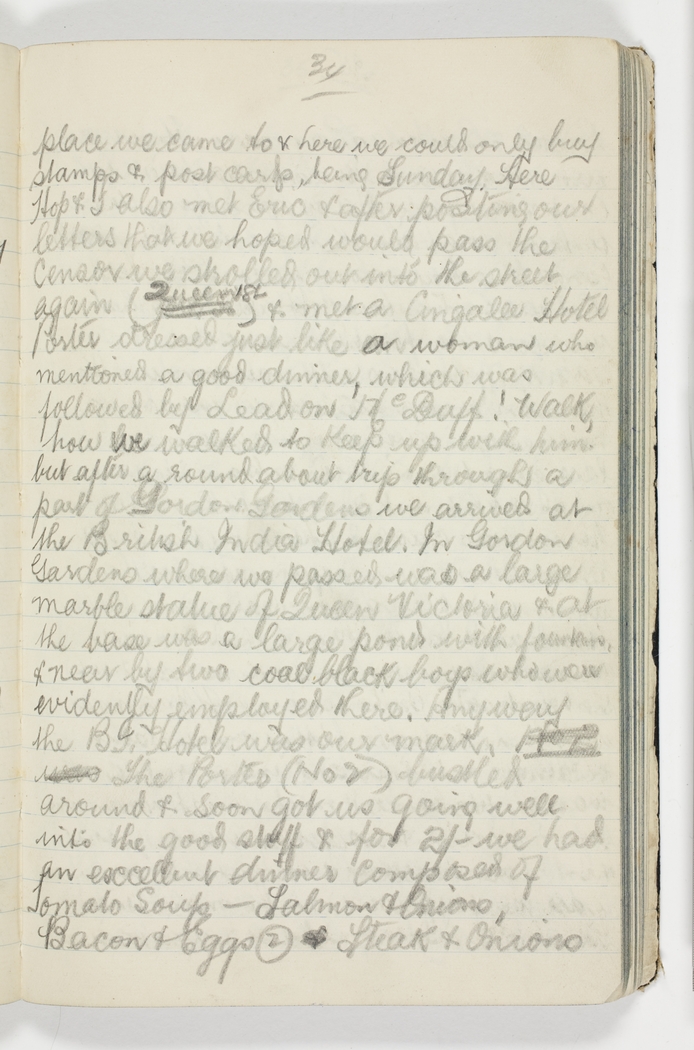 34
place we came to & here we could only buy
stamps & post cards, being Sunday. Here
Hop & I also met Eric & after posting our
letters that we hoped would pass the
Censor we strolled out into the street
again (Queen St) & met a Cingalee Hotel
Porter dressed just like a woman who
mentioned a good dinner, which was
followed by Lead on Mc Duff! Walk,
how we walked to keep up with him.
but after a round about trip through a
part of Gordon Gardens we arrived at
the British India Hotel. In Gordon
Gardens where we passed was a large
marble statue of Queen Victoria & at
the base was a large pond with fountain,
& near by two coal black boys who were
evidently employed there. Anyway
the B.I. Hotel was our mark.
was The Porter (No 2) bustled
around & soon got us going well
into the good stuff & for 2/- we had
an excellent dinner composed of
Tomato Soup — Salmon & Onions,
Bacon & Eggs (2) Steak & Onions